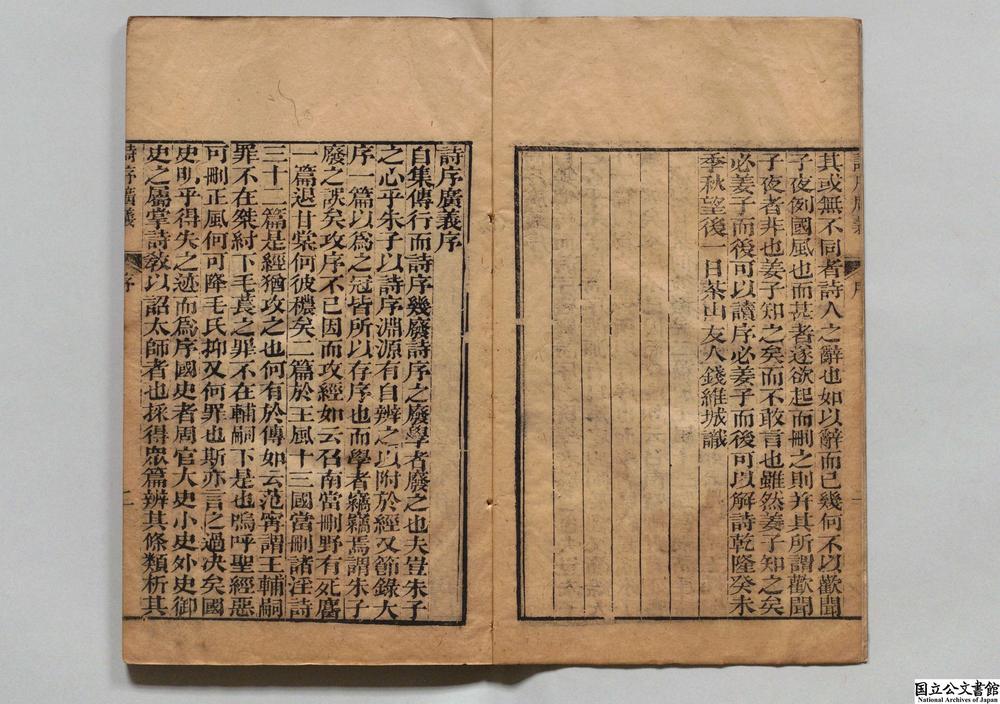 其或無不同者詩人之辭也如以辭而已幾何不以歡聞
子夜例國風也而甚者遂欲起而刪之則并其所謂歡聞
子夜者非也姜子知之矣而不敢言也雖然姜子知之矣
必姜子而後可以讀序必姜子而後可以解詩乾隆癸未
季秋望後一日茶山友人錢維城識
詩序廣義序
自集傳行而詩序幾廢詩序之廢學者廢之也夫豈朱子
之心乎朱子以詩序淵源有自辨之以附於經又節錄大
序一篇以爲之冠皆所以存序也而學者竊竊焉謂朱子
廢之誤矣攻序不已因而攻經如云召南當刪野有死麕
一篇退甘棠何彼穠矣二篇於王風十三國當刪諸淫詩
三十二篇是經猶攻之也何有於傳如云范甯謂王輔嗣
罪不在桀紂下毛萇之罪不在輔嗣下是也嗚呼聖經惡
可刪正風何可降毛氏抑又何罪也斯亦言之過決矣國
史明乎得失之迹而爲序國史者周官大史小史外史御
史之屬掌詩敎以詔太師者也採得眾篇辨其條類析其
詩序廣義
序
二
国立公文書館
National Archives of Japan